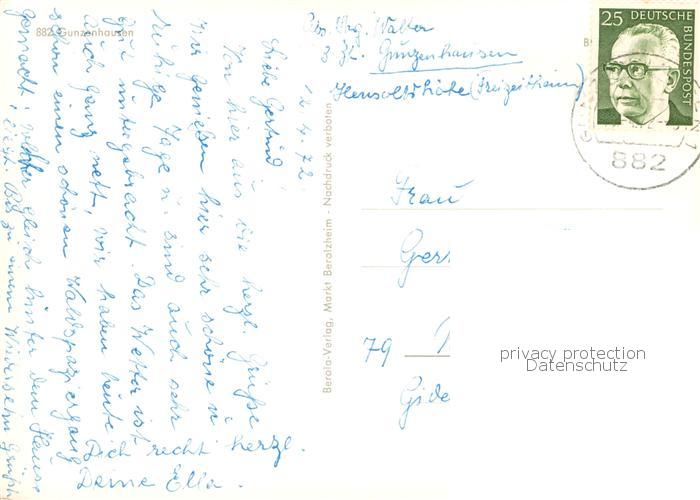 882 Gunzenhausen
Abs. Ing. Walter
z. Zt. Gunzenhausen
Hensoltshöhe (Freizeitheim)
25 DEUTSCHE BUNDESPOST
882
12.4.72.
Liebe Gertrud!
Von hier aus die herzl. Grüße.
Wir genießen hier sehr schöne u.
ruhige Tage u. sind auch sehr
gut untergebracht. Das Wetter ist
auch ganz nett, wir haben heute
schon einen schönen Waldspaziergang
gemacht, gleich hinter dem Hause
Bis zu einem Wiedersehn grüßt
Dich recht herzl.
Deine Ella.
Berola-Verlag, Markt Berolzheim - Nachdruck verboten
Frau
Ger
79
Gide
privacy protection
Datenschutz